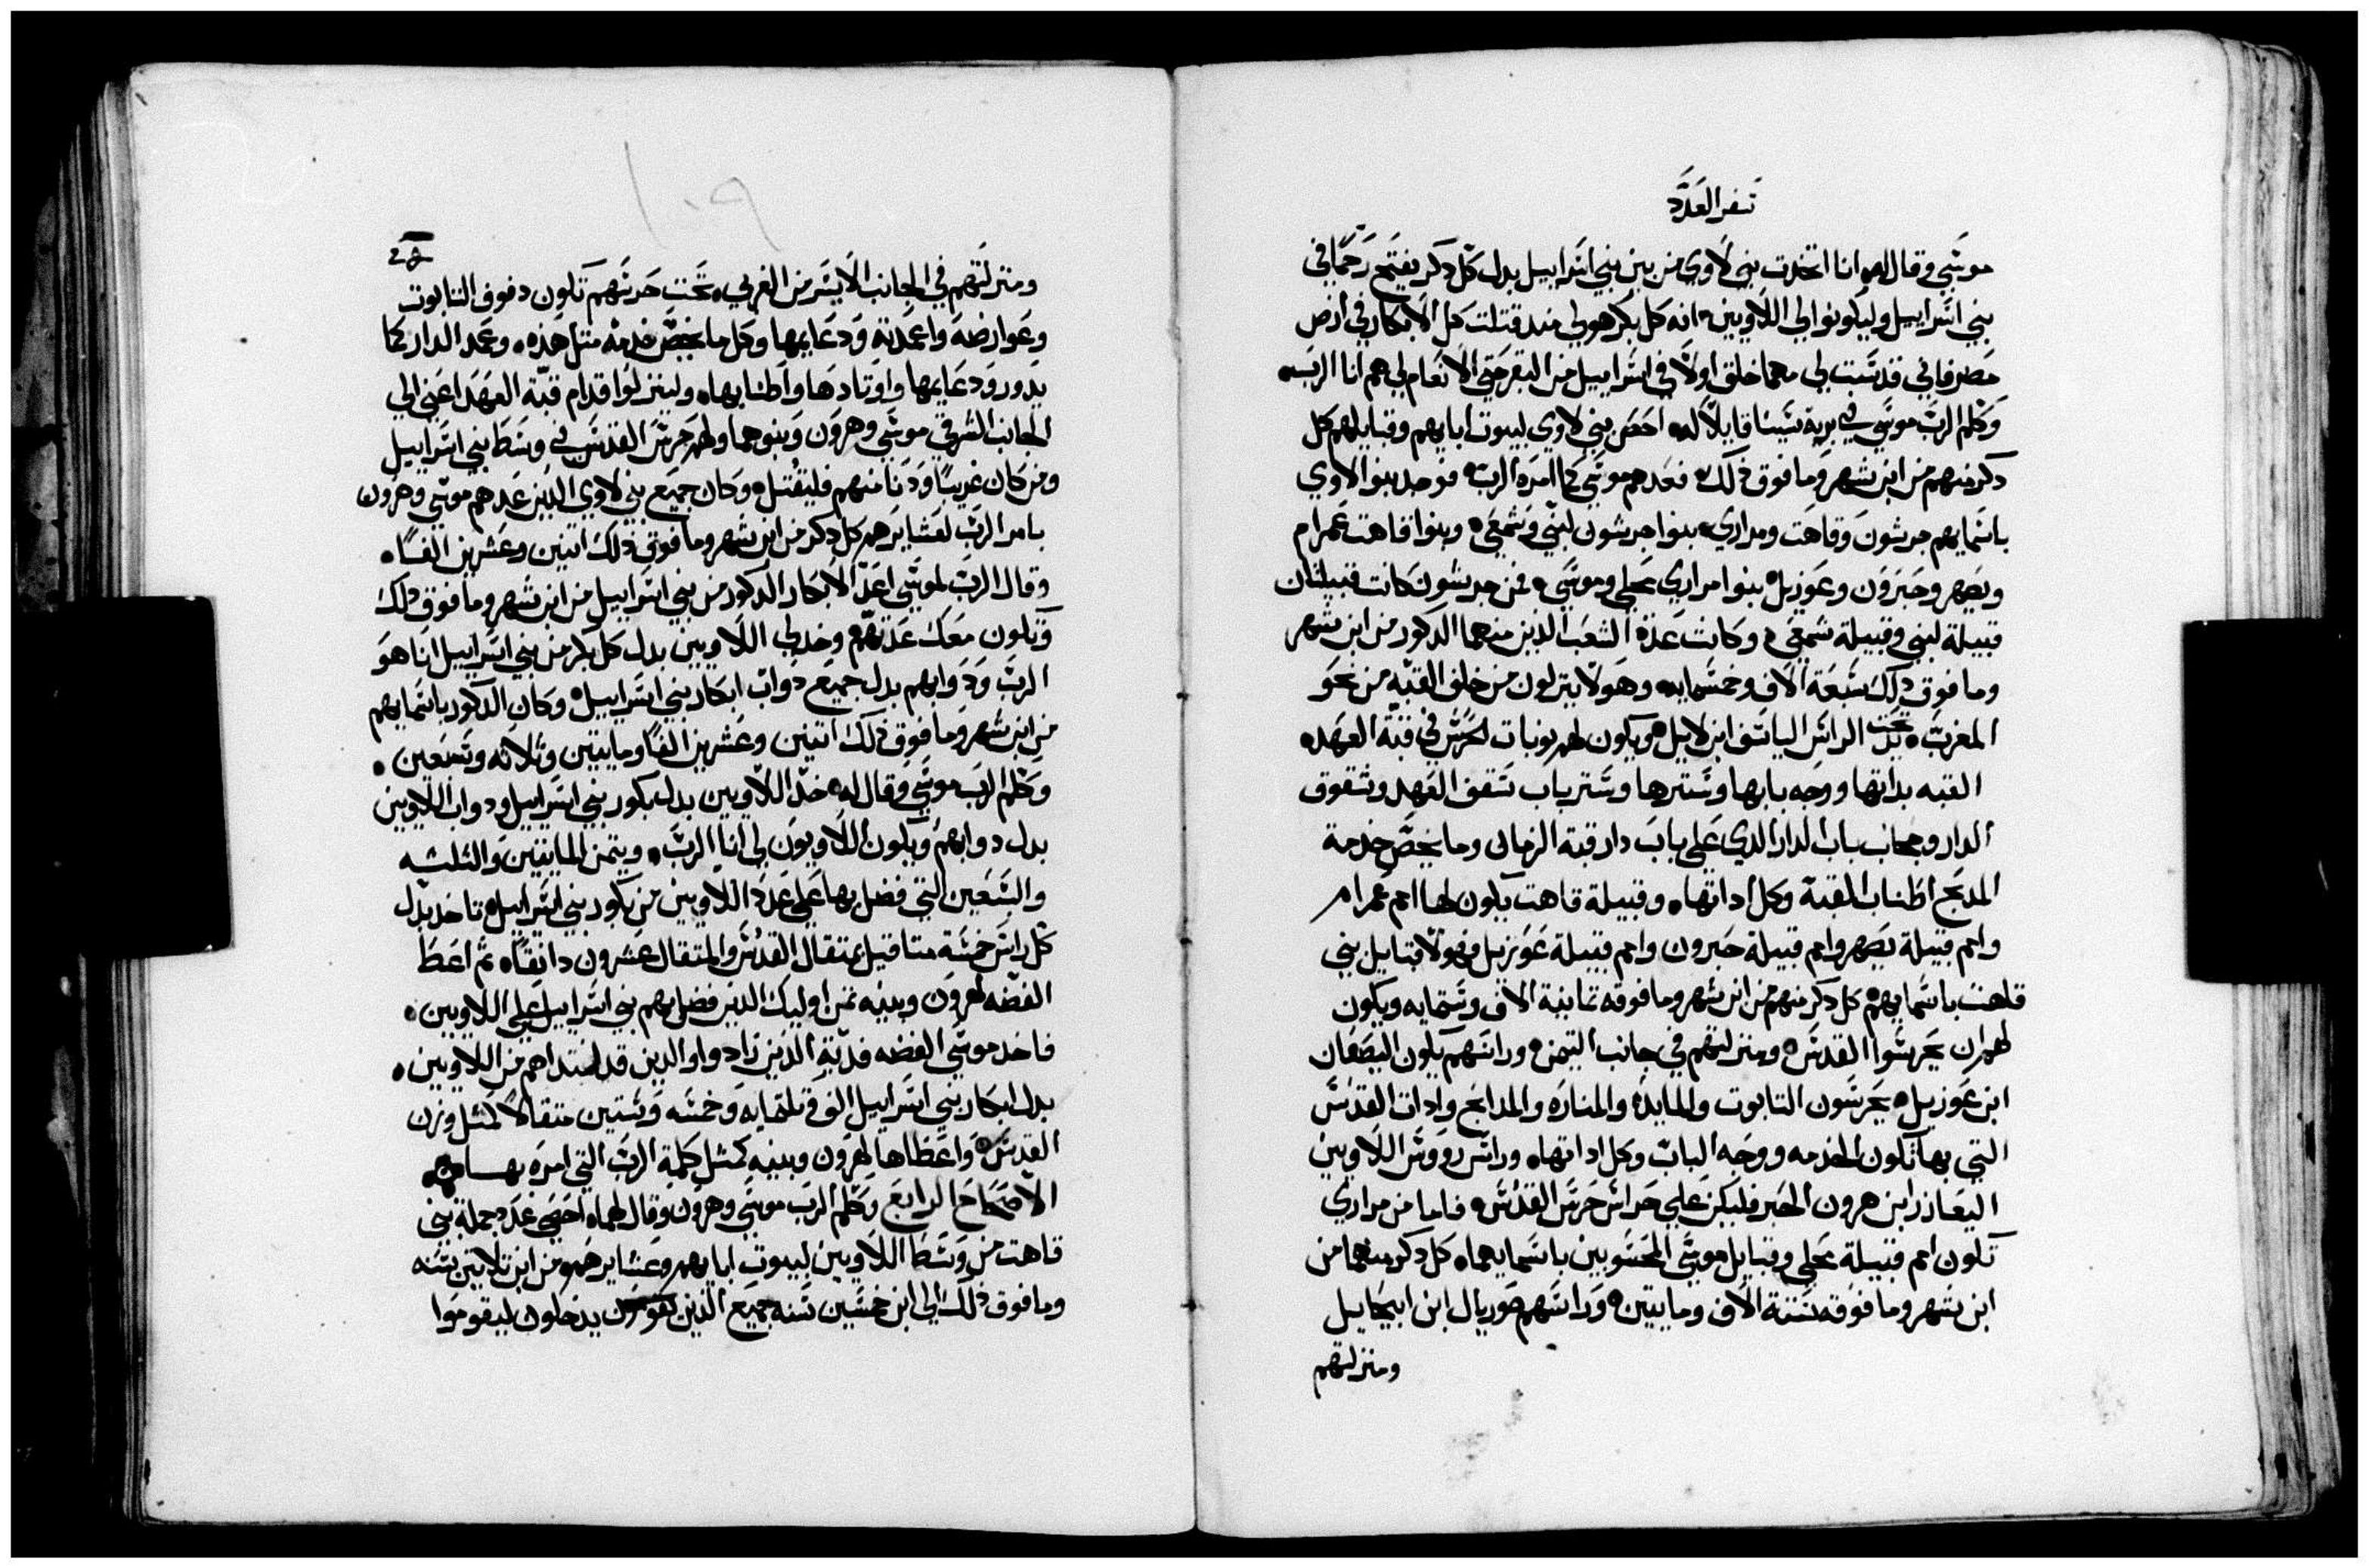 سفر العدد
موسي وقال له انا اتخدت بني لاوي من بين بني اسراييل بدل كل دكر يفتح رحما في
بني اسراييل وليكونوا لي اللاويين انه كل بكر هو لي مند قتلت كل الابكار في ارض
مصر فاني قدست لي مهما خلق اولا في اسراييل من البقر حتي الانعام لي هم انا الرب
وكلم الرب موسي في برية سينا قايلا له احص بني لاوي لبيوت ابايهم وقبايلهم كل
دكر منهم من ابن شهر وما فوق ذلك فعدهم موسي كما امره الرب فوجد بنوا لاوي
باسمايهم جرشون وقاهت ومراري بنوا جرشون لبني وشمعي وبنوا قاهت عمرام
ويصهر وحبرون وعوزيل بنوا مراري محلي وموسي فمن جرشون كانت قبيلتان
قبيلة لبني وقبيلة شمعي وكانت عدة الشعب الدين منهما الدكور من ابن شهر
وما فوق ذلك سبعة الاف وخمسمايه وهولا ينزلون من خلف القبه من نحو
المغرب تحت يد الراس الياسف ابن لاييل ويكون لهم نوبات الحرس في قبة العهد
القبه بداتها ووجه بابها وسترها وستر باب سقف العهد وشقوق
الدار وحجاب باب الدار الدي علي باب دار قبة الزمان وما يخص خدمة
المدبح اطناب القبة وكل اداتها وقبيلة قاهت يكون لها امم عمرام
وامم قبيلة يصهر وامم قبيلة حبرون وامم قبيلة عوزيل فهولا قبايل بني
قاهت باسمايهم كل دكر منهم من ابن شهر وما فوقه تمانية الاف وستمايه ويكون
لهم ان يحرسوا القدس ومنزلتهم في جانب التيمن وراسهم يكون اليصفان
ابن عوزيل يحرسون التابوت والمايدة والمناره والمدابح وادات القدس
التي بها تكون الخدمه ووجه الباب وكل اداتها وراس رووس اللاويين
اليعازر ابن هرون الحبر فليكن علي حراس حرس القدس فاما من مراري
تكون امم قبيلة محلي وقبايل موسي المحسوبين باسمايهما كل دكر منهما من
ابن شهر وما فوقه ستة الاف ومايتين وراسهم صوريال ابن ابيحاييل
ومنزلتهم
١٠٩
ومنزلتهم في الجانب الايسر من الغربي تحت حرستهم تكون دفوف التابوت
وعوارضه واعمدته ودعايمها وكل ما يخص خدمة مثل هذه وعمد الدار كما
يدور ودعايمها واوتادها واطنابها ولينزلوا قدام قبة العهد اعني الي
الجانب الشرقي موسي وهرون وبنوهما ولهم حرس القدس في وسط بني اسراييل
ومن كان غريبا ودنا منهم فليقتل وكان جميع بني لاوي الدين عدهم موسي وهرون
بامر الرب لعشايرهم كل دكر من ابن شهر وما فوق ذلك اتنين وعشرين الفا
وقال الرب لموسي اعد الابكار الدكور من بني اسراييل من ابن شهر وما فوق ذلك
وتكون معك عدتهم وخد لي اللاويين بدل كل بكر من بني اسراييل انا هو
الرب ودوابهم بدل جميع دواب ابكار بني اسراييل وكان الدكور باسمايهم
من ابن شهر وما فوق ذلك اتنين وعشرين الفا ومايتين وتلاته وسبعين
وكلم الرب موسي وقال له خد اللاويين بدل بكور بني اسراييل ودواب اللاويين
بدل دوابهم ويكون اللاويون لي انا الرب ويتمن المايتين والتلته
والسبعين التي فضل بها علي عدد اللاويين من بكور بني اسراييل تاخد بدل
كل راس خمسة متاقيل بمتقال القدس والمتقال عشرون دانقا ثم اعط
الفضه لهرون وبنيه تمن اوليك الدين فضل بهم بني اسراييل علي اللاويين
فاخد موسي الفضه فدية الدين زادوا والدين قد افتداهم من اللاويين
بدل ابكار بني اسراييل الف وتلتمايه وخمسه وستين متقالا كمثل وزن
القدس واعطاها لهرون وبنيه كمثل كلمة الرب التي امره بها
الاصحاح الرابع وكلم الرب موسي وهرون وقال لهما احصي عدد جملة بني
قاهت من وسط اللاويين لبيوت ابايهم وعشايرهم من ابن تلاتين سنه
وما فوق ذلك الي ابن خمسين سنه جميع الذين يدخلون ليقوموا